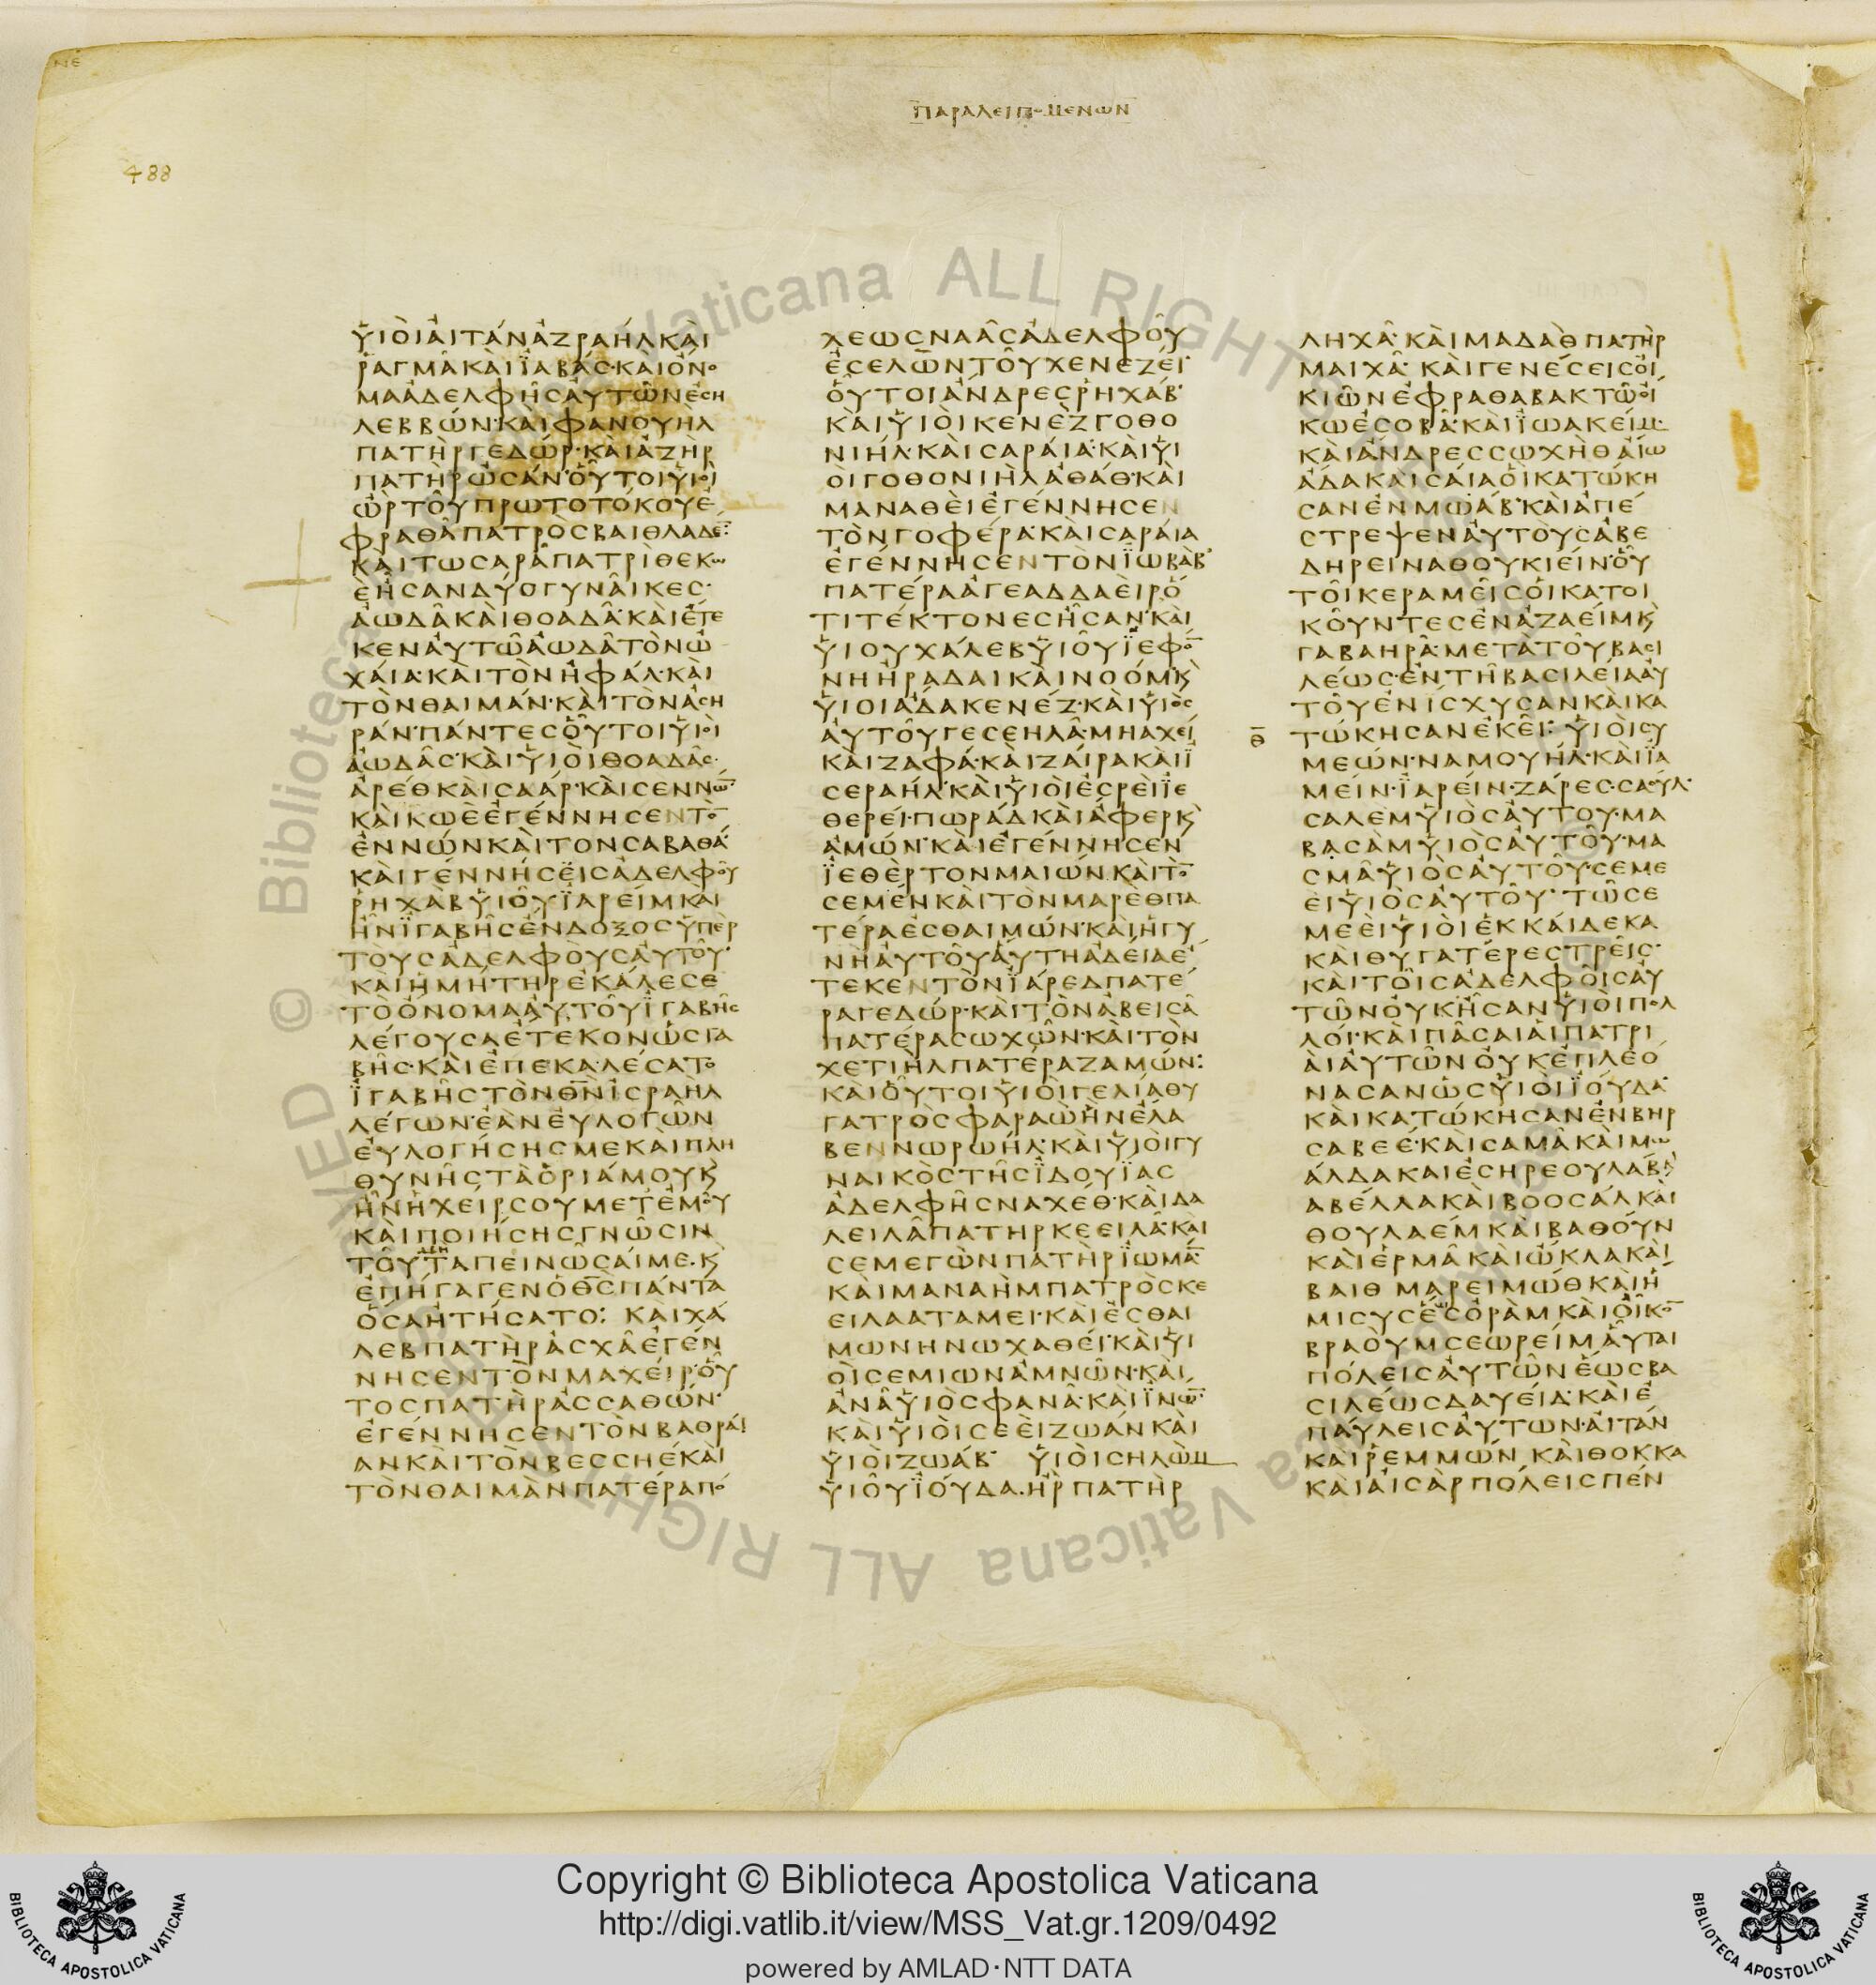 ΝΕ
ΠΑΡΑΛΕΙΠΟΜΕΝΩΝ
488
ΥΙΟΙΑΙΤΑΝΑΖΡΑΗΛΚΑΙ
ΡΑΓΜΑΚΑΙΙΑΒΑΣ·ΚΑΙΟΝΟ
ΜΑΑΔΕΛΦΗΣΑΥΤΩΝΕΣΗ
ΛΕΒΒΩΝ·ΚΑΙΦΑΝΟΥΗΛ
ΠΑΤΗΡΓΕΔΩΡ·ΚΑΙΑΖΗΡ
ΠΑΤΗΡΩΣΑΝ·ΟΥΤΟΙΥΙΟΙ
ΩΡΤΟΥΠΡΩΤΟΤΟΚΟΥΕ
ΦΡΑΘΑΠΑΤΡΟΣΒΑΙΘΛΑΔΕ̅
ΚΑΙΤΩΣΑΡΑΠΑΤΡΙΘΕΚΩ
ΕΗΣΑΝΔΥΟΓΥΝΑΙΚΕΣ·
ΑΩΔΑΚΑΙΘΟΑΔΑ·ΚΑΙΕΤΕ
ΚΕΝΑΥΤΩΑΩΔΑΤΟΝΩ
ΧΑΙΑ·ΚΑΙΤΟΝΗΦΑΛ·ΚΑΙ
ΤΟΝΘΑΙΜΑΝ·ΚΑΙΤΟΝΑΣΗ
ΡΑΝ·ΠΑΝΤΕΣΟΥΤΟΙΥΙΟΙ
ΑΩΔΑΣ·ΚΑΙΥΙΟΙΘΟΑΔΑΣ·
ΑΡΕΘΚΑΙΣΑΑΡ·ΚΑΙΣΕΝΝΩ̅
ΚΑΙΚΩΕΕΓΕΝΝΗΣΕΝΤΟ̅
ΕΝΝΩΝΚΑΙΤΟΝΣΑΒΑΘΑ
ΚΑΙΓΕΝΝΗΣΕΙΣΑΔΕΛΦΟΥ
ΡΗΧΑΒΥΙΟΥΙΑΡΕΙΜΚΑΙ
ΗΝΙΓΑΒΗΣΕΝΔΟΞΟΣΥΠΕΡ
ΤΟΥΣΑΔΕΛΦΟΥΣΑΥΤΟΥ·
ΚΑΙΗΜΗΤΗΡΕΚΑΛΕΣΕ
ΤΟΟΝΟΜΑΑΥΤΟΥΙΓΑΒΗΣ
ΛΕΓΟΥΣΑΕΤΕΚΟΝΩΣΓΑ
ΒΗΣ·ΚΑΙΕΠΕΚΑΛΕΣΑΤΟ
ΙΓΑΒΗΣΤΟΝΘ̅Ν̅ΙΣΡΑΗΛ
ΛΕΓΩΝ·ΕΑΝΕΥΛΟΓΩΝ
ΕΥΛΟΓΗΣΗΣΜΕΚΑΙΠΛΗ
ΘΥΝΗΣΤΑΟΡΙΑΜΟΥΚ
ΗΝΗΧΕΙΡΣΟΥΜΕΤΕΜΟΥ
ΚΑΙΠΟΙΗΣΗΣΓΝΩΣΙΝ
ΤΟΥΤΑΠΕΙΝΩΣΑΙΜΕ·Κ
ΕΠΗΓΑΓΕΝΟΘ̅Σ̅ΠΑΝΤΑ
ΟΣΑΗΤΗΣΑΤΟ: ΚΑΙΧΑ
ΛΕΒΠΑΤΗΡΑΣΧΑΕΓΕΝ
ΝΗΣΕΝΤΟΝΜΑΧΕΙΡ·ΟΥ
ΤΟΣΠΑΤΗΡΑΣΣΑΘΩΝ·
ΕΓΕΝΝΗΣΕΝΤΟΝΒΑΘΡΑΙ
ΑΝΚΑΙΤΟΝΒΕΣΣΗΕΚΑΙ
ΤΟΝΘΑΙΜΑΝΠΑΤΕΡΑΠΟ
ΛΕΩΣΝΑΑΣΑΔΕΛΦΟΥ
ΕΣΕΛΩΝΤΟΥΧΕΝΕΖΕΙ·
ΟΥΤΟΙΑΝΔΡΕΣΡΗΧΑΒ·
ΚΑΙΥΙΟΙΚΕΝΕΖΓΟΘΟ
ΝΙΗΛ·ΚΑΙΣΑΡΑΙΑ·ΚΑΙΥΙ
ΟΙΓΟΘΟΝΙΗΛΑΘΑΘ·ΚΑΙ
ΜΑΝΑΘΕΙΕΓΕΝΝΗΣΕΝ
ΤΟΝΓΟΦΕΡΑ·ΚΑΙΣΑΡΑΙΑ
ΕΓΕΝΝΗΣΕΝΤΟΝΙΩΒΑΒ·
ΠΑΤΕΡΑΑΓΕΑΔΔΑΕΙΡΟ
ΤΙΤΕΚΤΟΝΕΣΗΣΑΝ·ΚΑΙ
ΥΙΟΥΧΑΛΕΒΥΙΟΥΙΕΦΟ̅
ΝΗΗΡΑΔΑΙΚΑΙΝΟΟΜ·Κ
ΥΙΟΙΑΔΑΚΕΝΕΖ·ΚΑΙΥΙΟΣ
ΑΥΤΟΥΓΕΣΕΗΛΑ·ΜΗΑΧΕΙ
ΚΑΙΖΑΦΑ·ΚΑΙΖΑΙΡΑΚΑΙΙ
ΣΕΡΑΗΛ·ΚΑΙΥΙΟΙΕΣΡΕΙΙΕ
ΘΕΡΕΙ·ΠΩΡΑΔΚΑΙΑΦΕΡΚ
ΑΜΩΝ·ΚΑΙΕΓΕΝΝΗΣΕΝ
ΙΕΘΕΡΤΟΝΜΑΙΩΝ·ΚΑΙΤΟ̅
ΣΕΜΕΝΚΑΙΤΟΝΜΑΡΕΘΠΑ
ΤΕΡΑΕΣΘΑΙΜΩΝ·ΚΑΙΗΓΥ
ΝΗΑΥΤΟΥΑΥΤΗΑΔΕΙΑΕ
ΤΕΚΕΝΤΟΝΙΑΡΕΔΠΑΤΕ
ΡΑΓΕΔΩΡ·ΚΑΙΤΟΝΑΒΕΙΣΑ
ΠΑΤΕΡΑΣΩΧΩΝ·ΚΑΙΤΟΝ
ΧΕΤΙΗΛΠΑΤΕΡΑΖΑΜΩΝ:
ΚΑΙΟΥΤΟΙΥΙΟΙΓΕΛΙΑΘΥ
ΓΑΤΡΟΣΦΑΡΑΩΗΝΕΛΑ
ΒΕΝΝΩΡΩΗΛ·ΚΑΙΥΙΟΙΓΥ
ΝΑΙΚΟΣΤΗΣΙΔΟΥΙΑΣ
ΑΔΕΛΦΗΣΝΑΧΕΘ·ΚΑΙΔΑ
ΛΕΙΛΑΠΑΤΗΡΚΕΕΙΛΑ·ΚΑΙ
ΣΕΜΕΓΩΝΠΑΤΗΡΙΩΜΑ̅
ΚΑΙΜΑΝΑΗΜΠΑΤΡΟΣΚΕ
ΕΙΛΑΑΤΑΜΕΙ·ΚΑΙΕΣΘΑΙ
ΜΩΝΗΝΩΧΑΘΕΙ·ΚΑΙΥΙ
ΟΙΣΕΜΙΩΝΑΜΝΩΝ·ΚΑΙ
ΑΝΑΥΙΟΣΦΑΝΑ·ΚΑΙΙΝΩ̅
ΚΑΙΥΙΟΙΣΕΕΙΖΩΑΝΚΑΙ
ΥΙΟΙΖΩΑΒ· ΥΙΟΙΣΗΛΩΜ
ΥΙΟΥΙΟΥΔΑ·ΗΡΠΑΤΗΡ
ΛΗΧΑ·ΚΑΙΜΑΔΑΘΠΑΤΗΡ
ΜΑΙΧΑ·ΚΑΙΓΕΝΕΣΕΙΣΟΙ
ΚΙΩΝΕΦΡΑΘΑΒΑΚΤΩΟΙ
ΚΩΕΣΟΒΑ·ΚΑΙΙΩΑΚΕΙΜ·
ΚΑΙΑΝΔΡΕΣΣΩΧΗΘΑΙΩ
ΑΔΑΚΑΙΣΑΙΑΟΙΚΑΤΩΚΗ
ΣΑΝΕΝΜΩΑΒ·ΚΑΙΑΠΕ
ΣΤΡΕΨΕΝΑΥΤΟΥΣΑΒΕ
ΔΗΡΕΙΝΑΘΟΥΚΙΕΙΝ·ΟΥ
ΤΟΙΚΕΡΑΜΕΙΣΟΙΚΑΤΟΙ
ΚΟΥΝΤΕΣΕΝΑΖΑΕΙΜΚ
ΓΑΒΑΗΡΑ·ΜΕΤΑΤΟΥΒΑΣΙ
ΛΕΩΣ·ΕΝΤΗΒΑΣΙΛΕΙΑΑΥ
ΤΟΥΕΝΙΣΧΥΣΑΝΚΑΙΚΑ
Θ̅
ΤΩΚΗΣΑΝΕΚΕΙ: ΥΙΟΙΣΥ
ΜΕΩΝ·ΝΑΜΟΥΗΛ·ΚΑΙΙΑ
ΜΕΙΝ·ΙΑΡΕΙΝ·ΖΑΡΕΣ·ΣΑΟΥΛ·
ΣΑΛΕΜΥΙΟΣΑΥΤΟΥ·ΜΑ
ΒΑΣΑΜΥΙΟΣΑΥΤΟΥ·ΜΑ
ΣΜΑΥΙΟΣΑΥΤΟΥ·ΣΕΜΕ
ΕΙΥΙΟΣΑΥΤΟΥ· ΤΩΣΕ
ΜΕΕΙΥΙΟΙΕΚΚΑΙΔΕΚΑ
ΚΑΙΘΥΓΑΤΕΡΕΣΤΡΕΙΣ·
ΚΑΙΤΟΙΣΑΔΕΛΦΟΙΣΑΥ
ΤΩΝΟΥΚΗΣΑΝΥΙΟΙΠΟΛ
ΛΟΙ·ΚΑΙΠΑΣΑΙΑΙΠΑΤΡΙ
ΑΙΑΥΤΩΝΟΥΚΕΠΛΕΟ
ΝΑΣΑΝΩΣΥΙΟΙΙΟΥΔΑ·
ΚΑΙΚΑΤΩΚΗΣΑΝΕΝΒΗΡ
ΣΑΒΕΕ·ΚΑΙΣΑΜΑΚΑΙΜΩ
ΑΛΔΑΚΑΙΕΣΗΡΕΟΥΛΑΒ
ΑΒΕΛΛΑΚΑΙΒΟΟΣΑΛΚΑΙ
ΘΟΥΛΑΕΜΚΑΙΒΑΘΟΥΝ
ΚΑΙΕΡΜΑΚΑΙΩΚΛΑΚΑΙ
ΒΑΙΘ ΜΑΡΕΙΜΩΘΚΑΙΗ
ΜΙΣΥΣΕΣΟΡΑΜΚΑΙΟΙΚΟ̅
ΒΡΑΟΥΜΣΕΩΡΕΙΜΑΥΤΑΙ
ΠΟΛΕΙΣΑΥΤΩΝΕΩΣΒΑ
ΣΙΛΕΩΣΔΑΥΕΙΔ·ΚΑΙΕ
ΠΑΥΛΕΙΣΑΥΤΩΝ·ΑΙΤΑΝ
ΚΑΙΡΕΜΜΩΝ ΚΑΙΘΟΚΚΑ
ΚΑΙΑΙΣΑΡΠΟΛΕΙΣΠΕΝ
Copyright © Biblioteca Apostolica Vaticana
http://digi.vatlib.it/view/MSS_Vat.gr.1209/0492
powered by AMLAD·NTT DATA
BIBLIOTECA APOSTOLICA VATICANA
BIBLIOTECA APOSTOLICA VATICANA